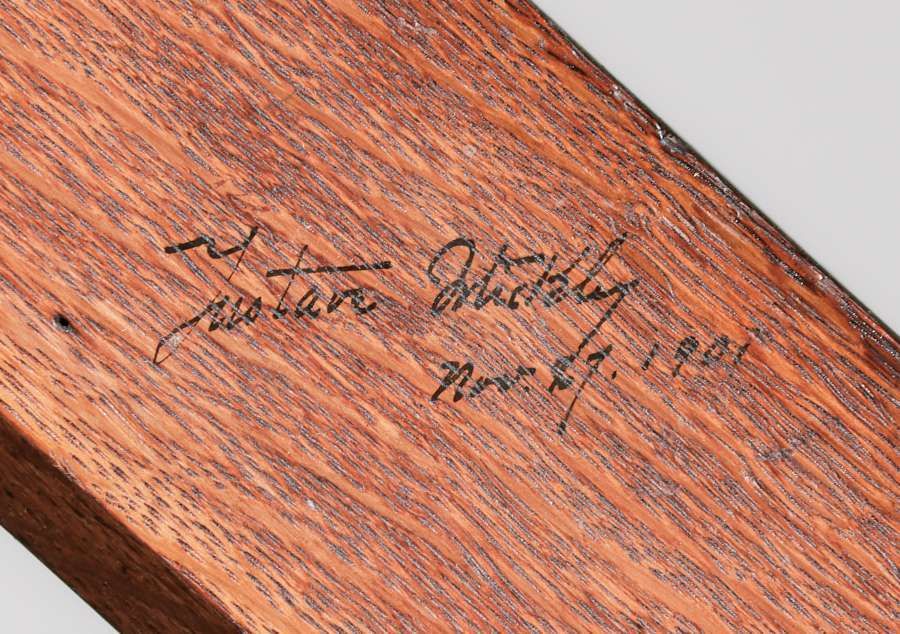 Gustave Stickley
Nov. 29. 1901